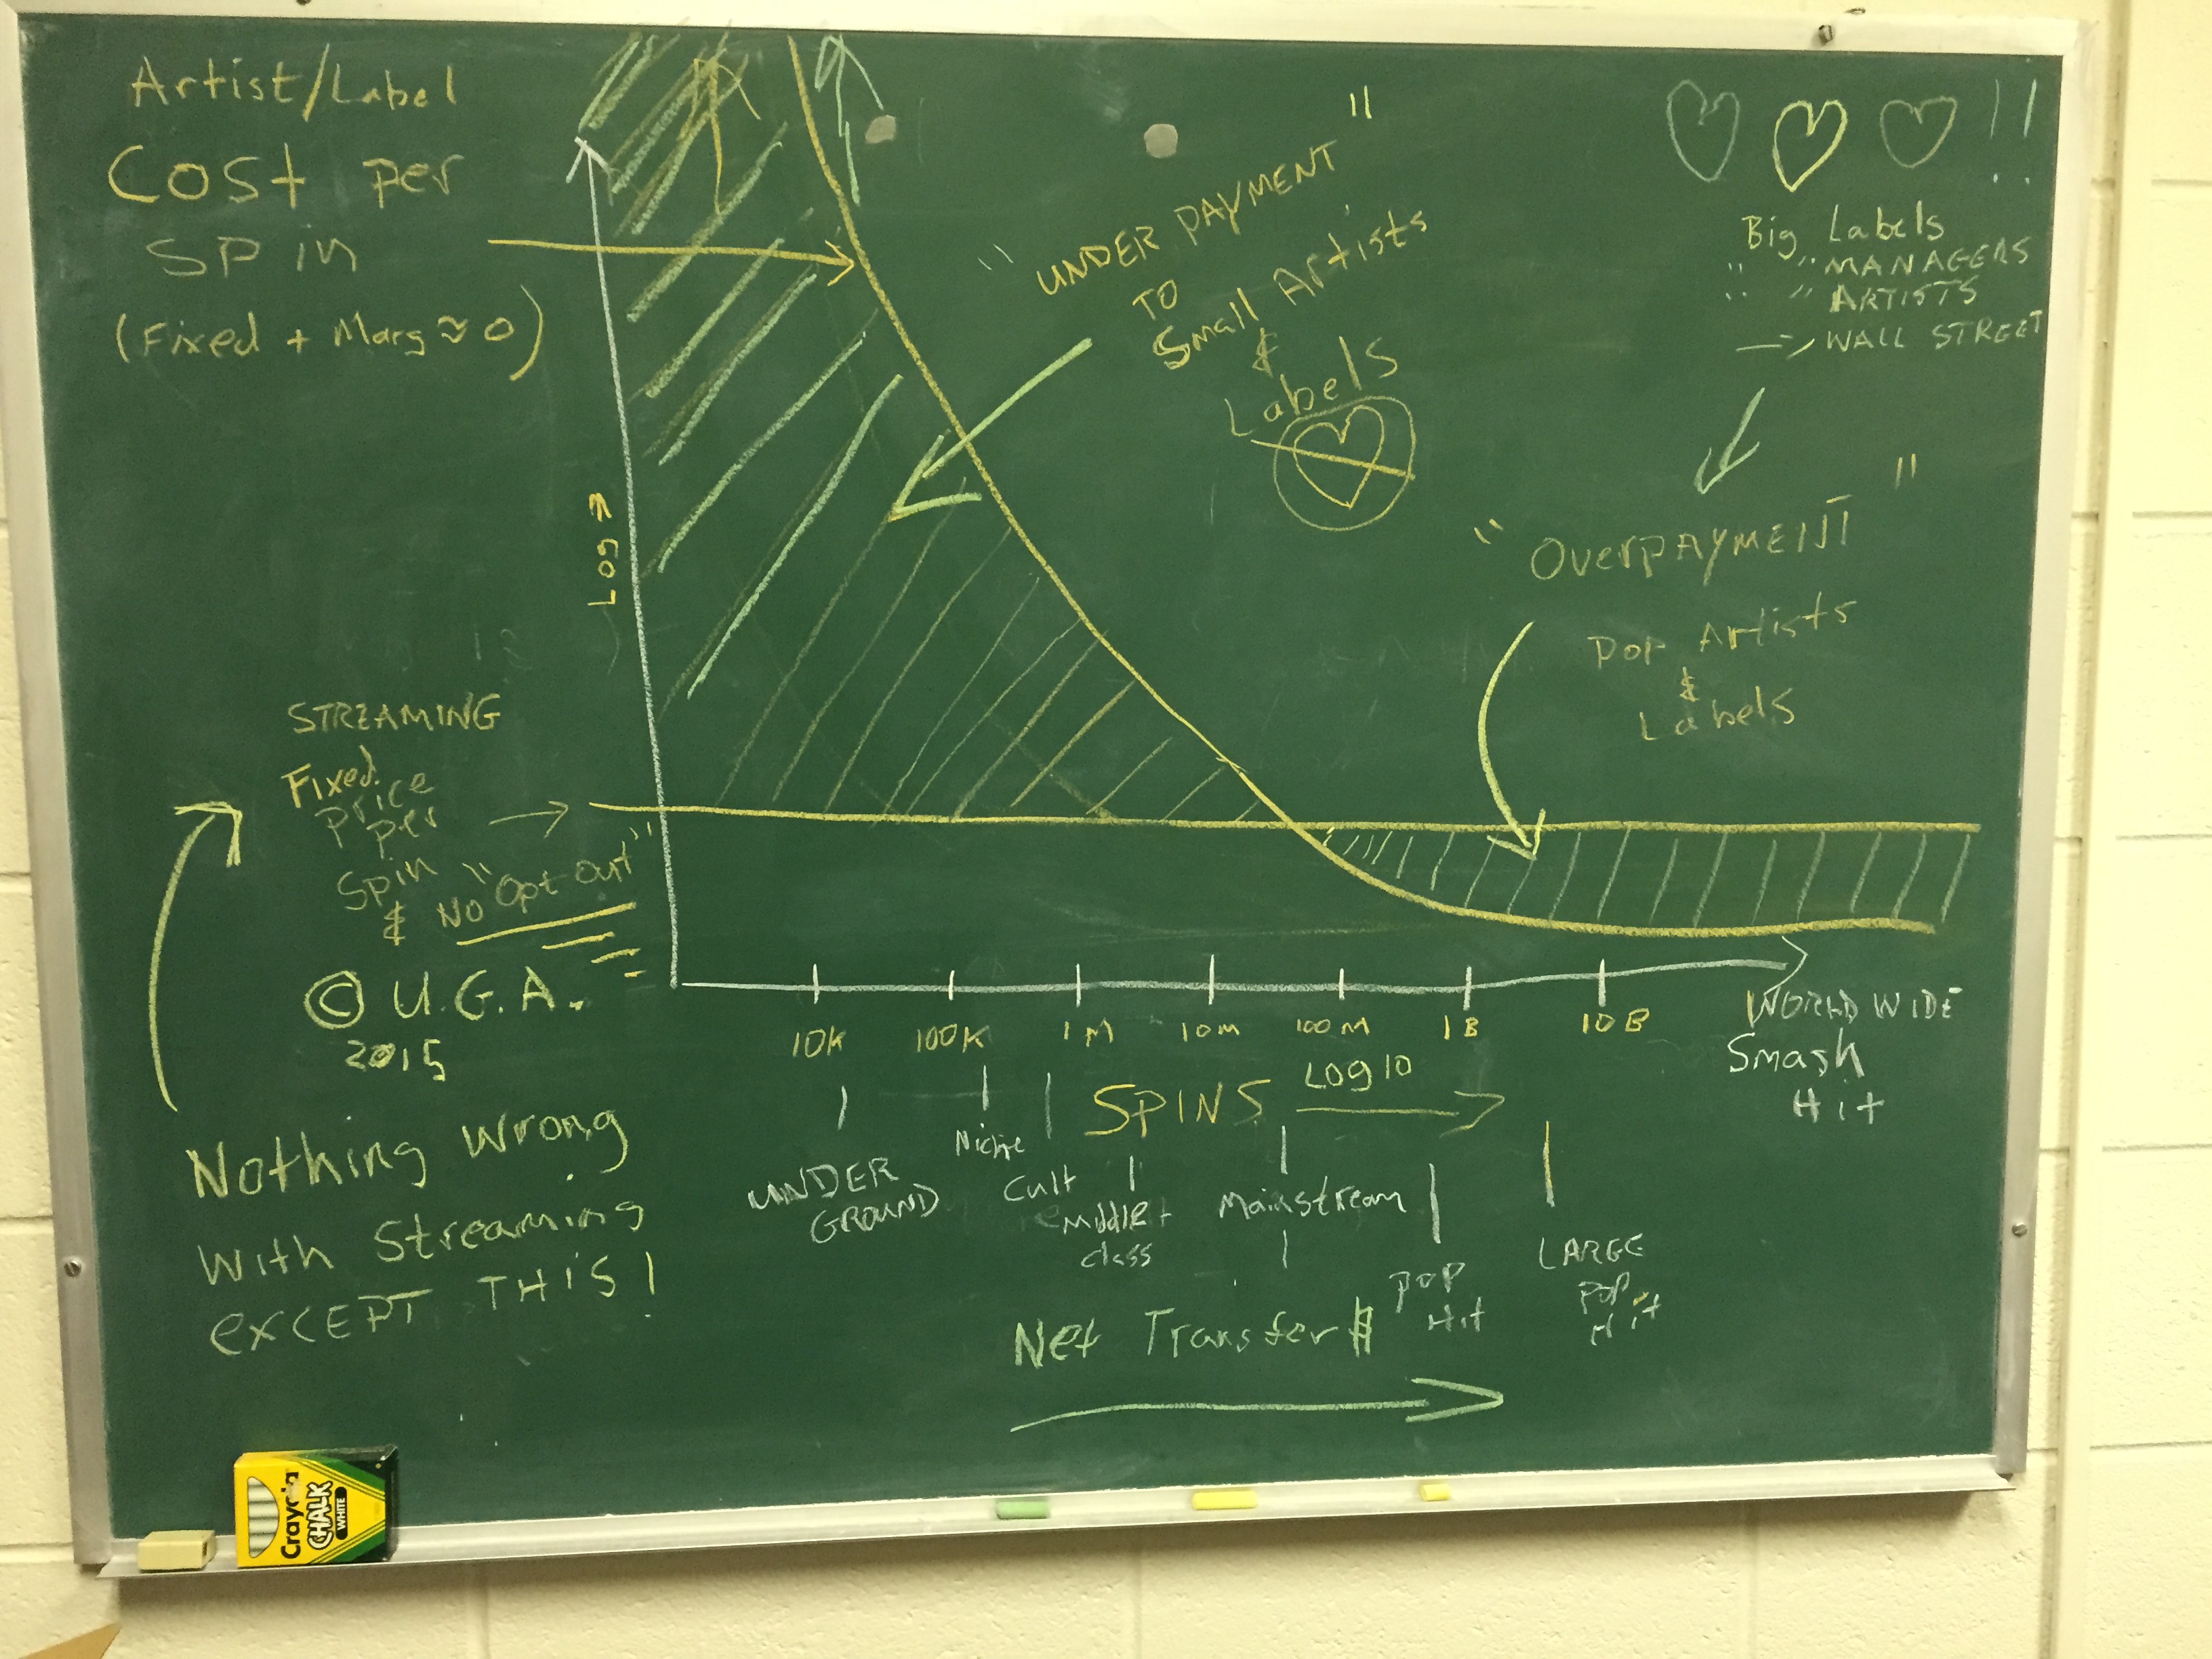 Artist/Label
Cost per
SPin
(Fixed + Marg ≈ 0)
"UNDER PAYMENT"
TO
Small Artists
&
Labels
!!
Big Labels
" " MANAGERS
" " ARTISTS
WALL STREET
"OverPAYMENT"
Pop Artists
&
Labels
Log
STREAMING
Fixed
Price
per
Spin
& No "Opt Out"
© U.G.A.
2015
Nothing wrong
with Streaming
exCEPT THiS!
10K 100K 1M 10M 100M 1B 10B
WORLD WIDE
Smash
Hit
SPINS Log10
UNDER
GROUND
Niche
Cult
Middle
class
Mainstream
POP
Hit
LARGE
POP
Hit
Net Transfer $
Crayola
CHALK
WHITE